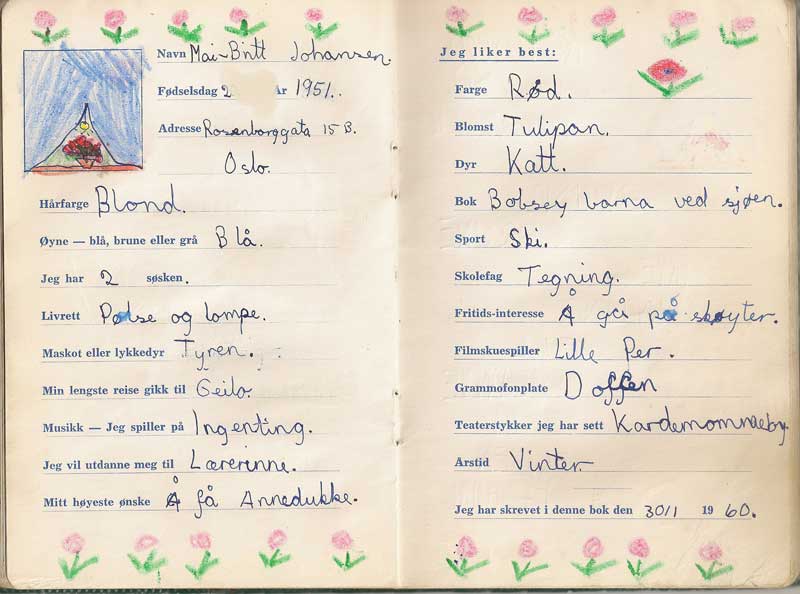 Navn Mai-Britt Johansen.
Fødselsdag 2 År 1951.
Adresse Rosenborggata 15 B.
Oslo.
Hårfarge Blond.
Øyne — blå, brune eller grå Blå.
Jeg har 2 søsken.
Livrett Pølse og lompe.
Maskot eller lykkedyr Tyren.
Min lengste reise gikk til Geilo.
Musikk — Jeg spiller på Ingenting.
Jeg vil utdanne meg til Lærerinne.
Mitt høyeste ønske Å få Annedukke.
Jeg liker best:
Farge Rød.
Blomst Tulipan.
Dyr Katt.
Bok Bobsey barna ved sjøen.
Sport Ski.
Skolefag Tegning.
Fritids-interesse Å gå på skøyter.
Filmskuespiller Lille Per.
Grammofonplate Doffen
Teaterstykker jeg har sett Kardemommeby.
Årstid Vinter
Jeg har skrevet i denne bok den 30/1 1960.